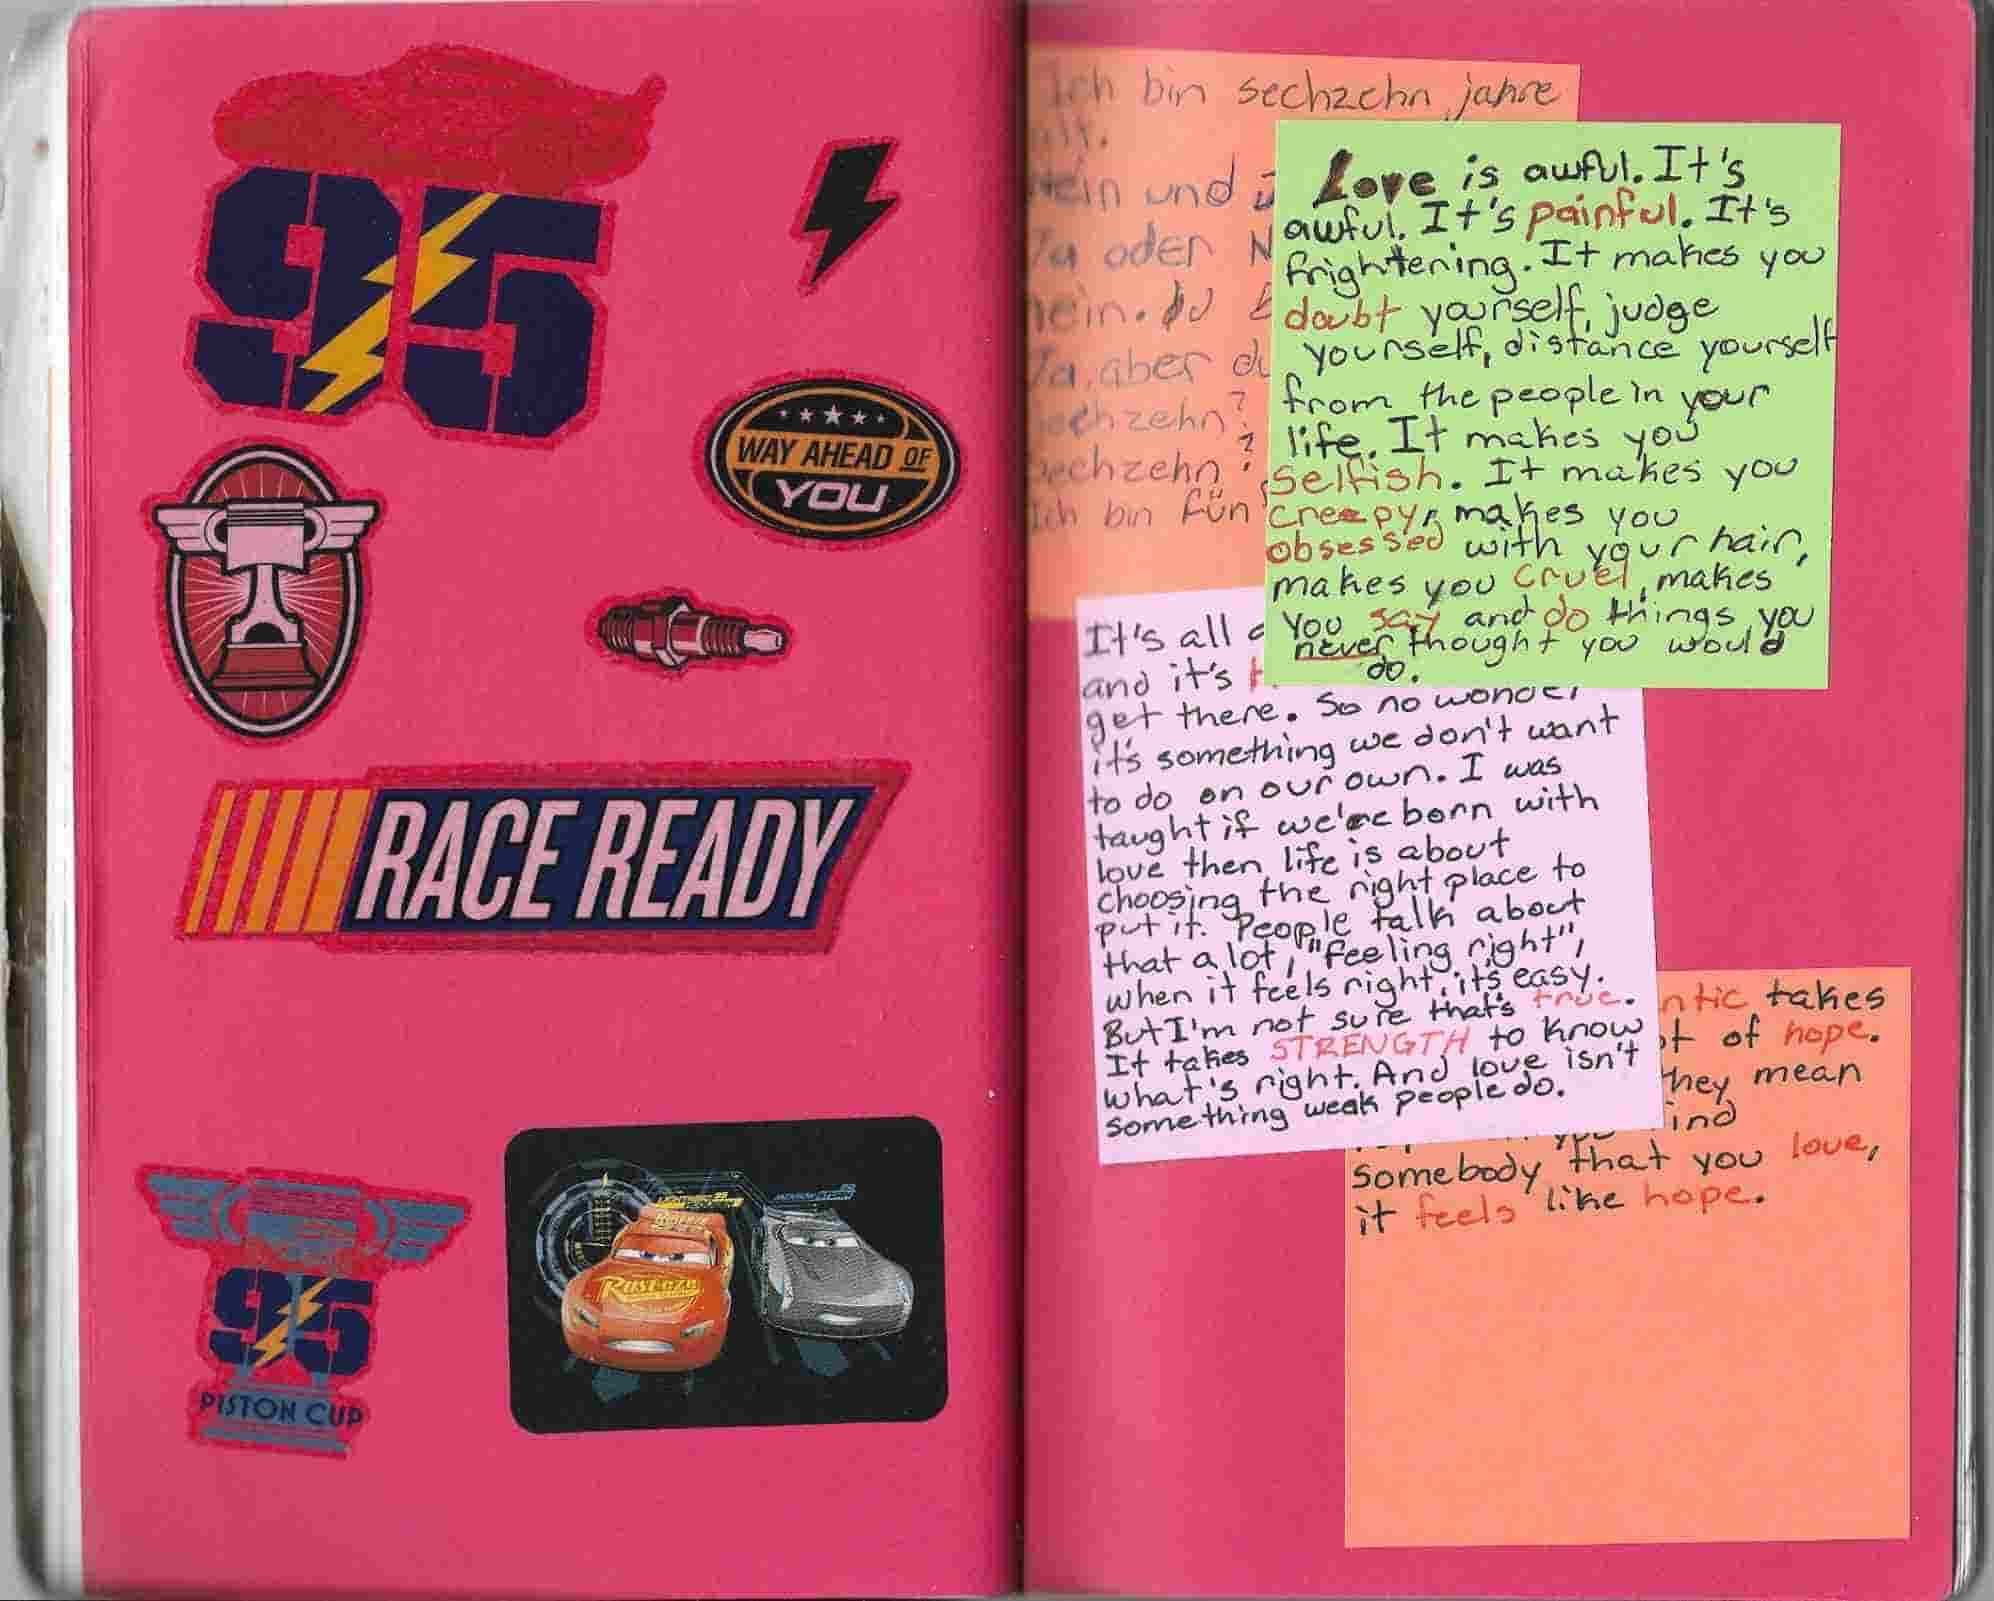 95
WAY AHEAD OF
YOU
RACE READY
95
PISTON CUP
Rust-eze
Ich bin sechzehn jahre
alt.
nein und
Ja oder N
nein. du
Ja, aber du
sechzehn?
sechzehn?
Ich bin fün
Love is awful. It's
awful. It's painful. It's
frightening. It makes you
doubt yourself, judge
yourself, distance yourself
from the people in your
life. It makes you
selfish. It makes you
creepy, makes you
obsessed with your hair,
makes you cruel, makes
you say and do things you
never thought you would
do.
It's all
and it's
get there. So no wonder
it's something we don't want
to do on our own. I was
taught if we're born with
love then life is about
choosing the right place to
put it. People talk about
that a lot, "feeling right",
when it feels right, it's easy.
But I'm not sure that's true.
It takes STRENGTH to know
what's right. And love isn't
something weak people do.
ntic takes
of hope.
they mean
you find
somebody that you love,
it feels like hope.